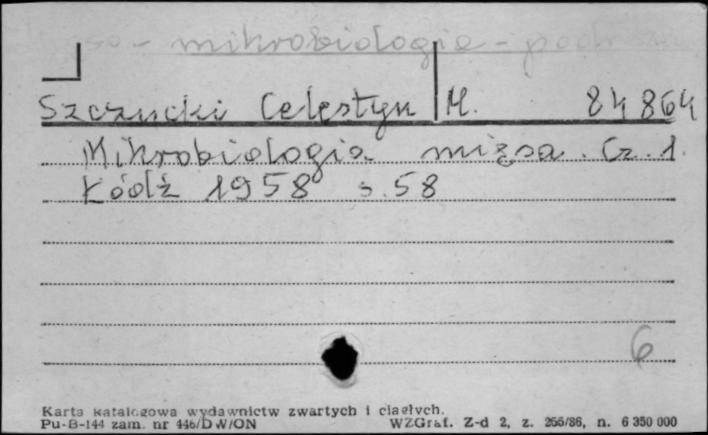 - mikrobiologia -
Szczucki Celestyn M. 84864
Mikrobiologia mięsa. Cz. 1.
Łódź 1958 s. 58
6
Karta katalogowa wydawnictw zwartych i ciągłych.
Pu-B-144 zam. nr 446/DW/ON WZGraf. Z-d 2, z. 255/86, n. 6 350 000